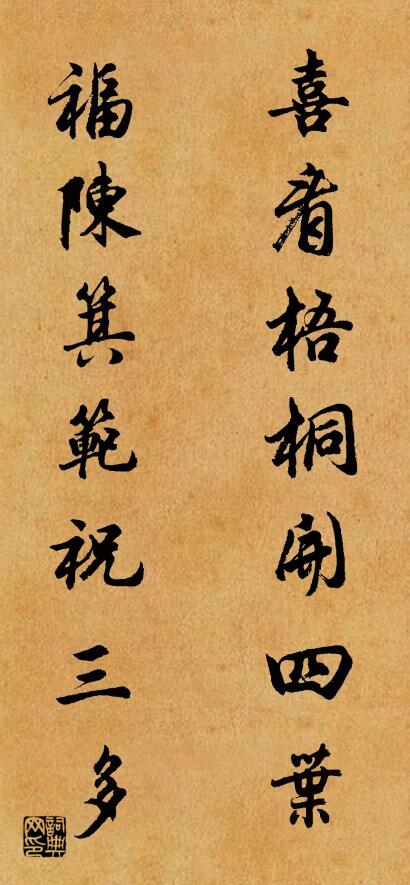 喜看梧桐開四葉
福陳箕範祝三多
詞典網印